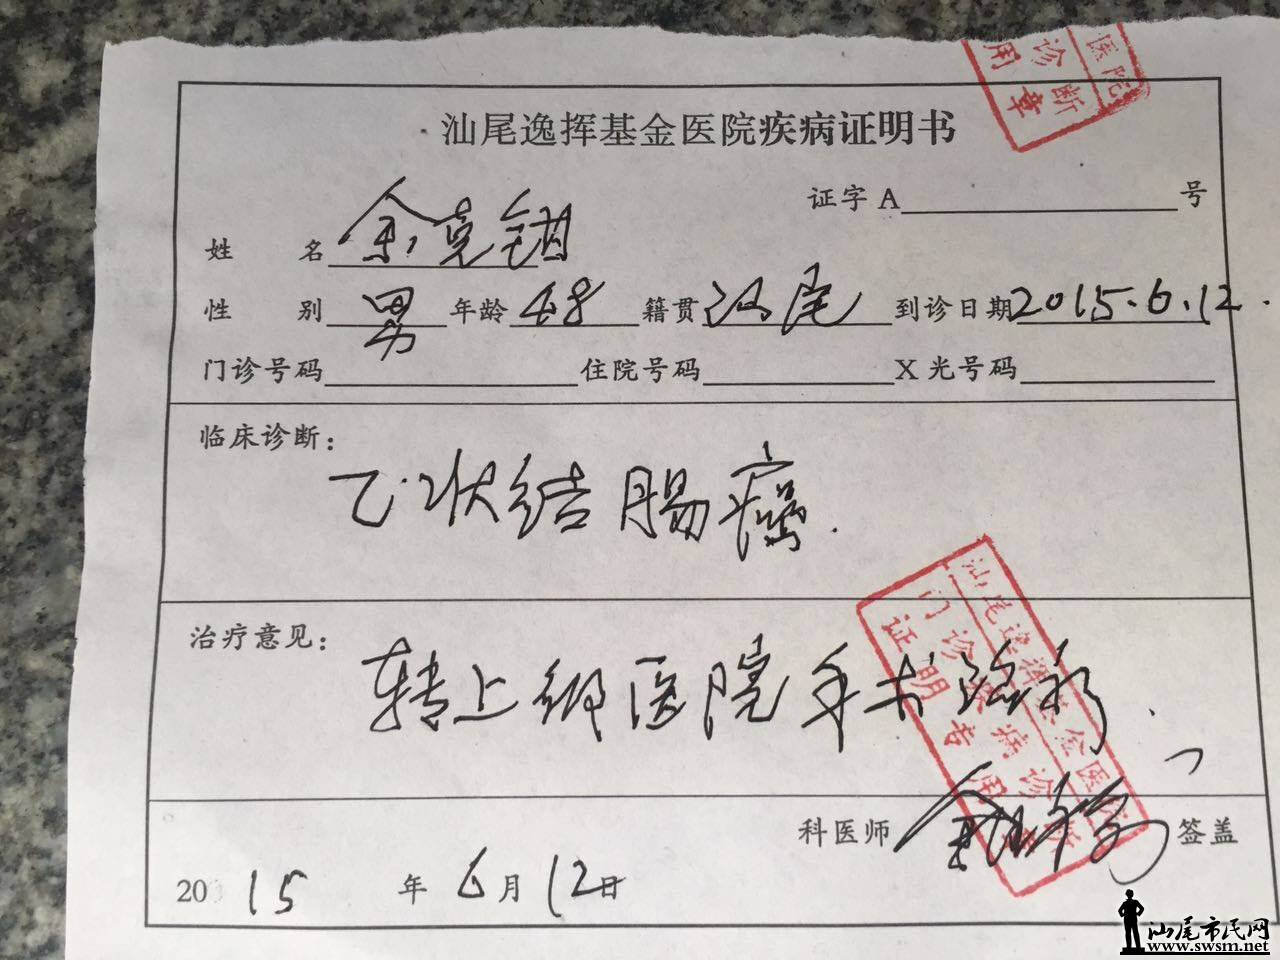 医院
诊断
用章
汕尾逸挥基金医院疾病证明书
证字 A 号
姓 名 余克钿
性 别 男 年龄 48 籍贯 汕尾 到诊日期 2015.6.12.
门诊号码 住院号码 X光号码
临床诊断:
乙状结肠癌.
治疗意见:
转上级医院手术治疗.
汕尾逸挥基金医院
门诊疾病诊断
证明专用章
科医师 签盖
2015 年 6月 12日
汕尾市民网
www.swsm.net